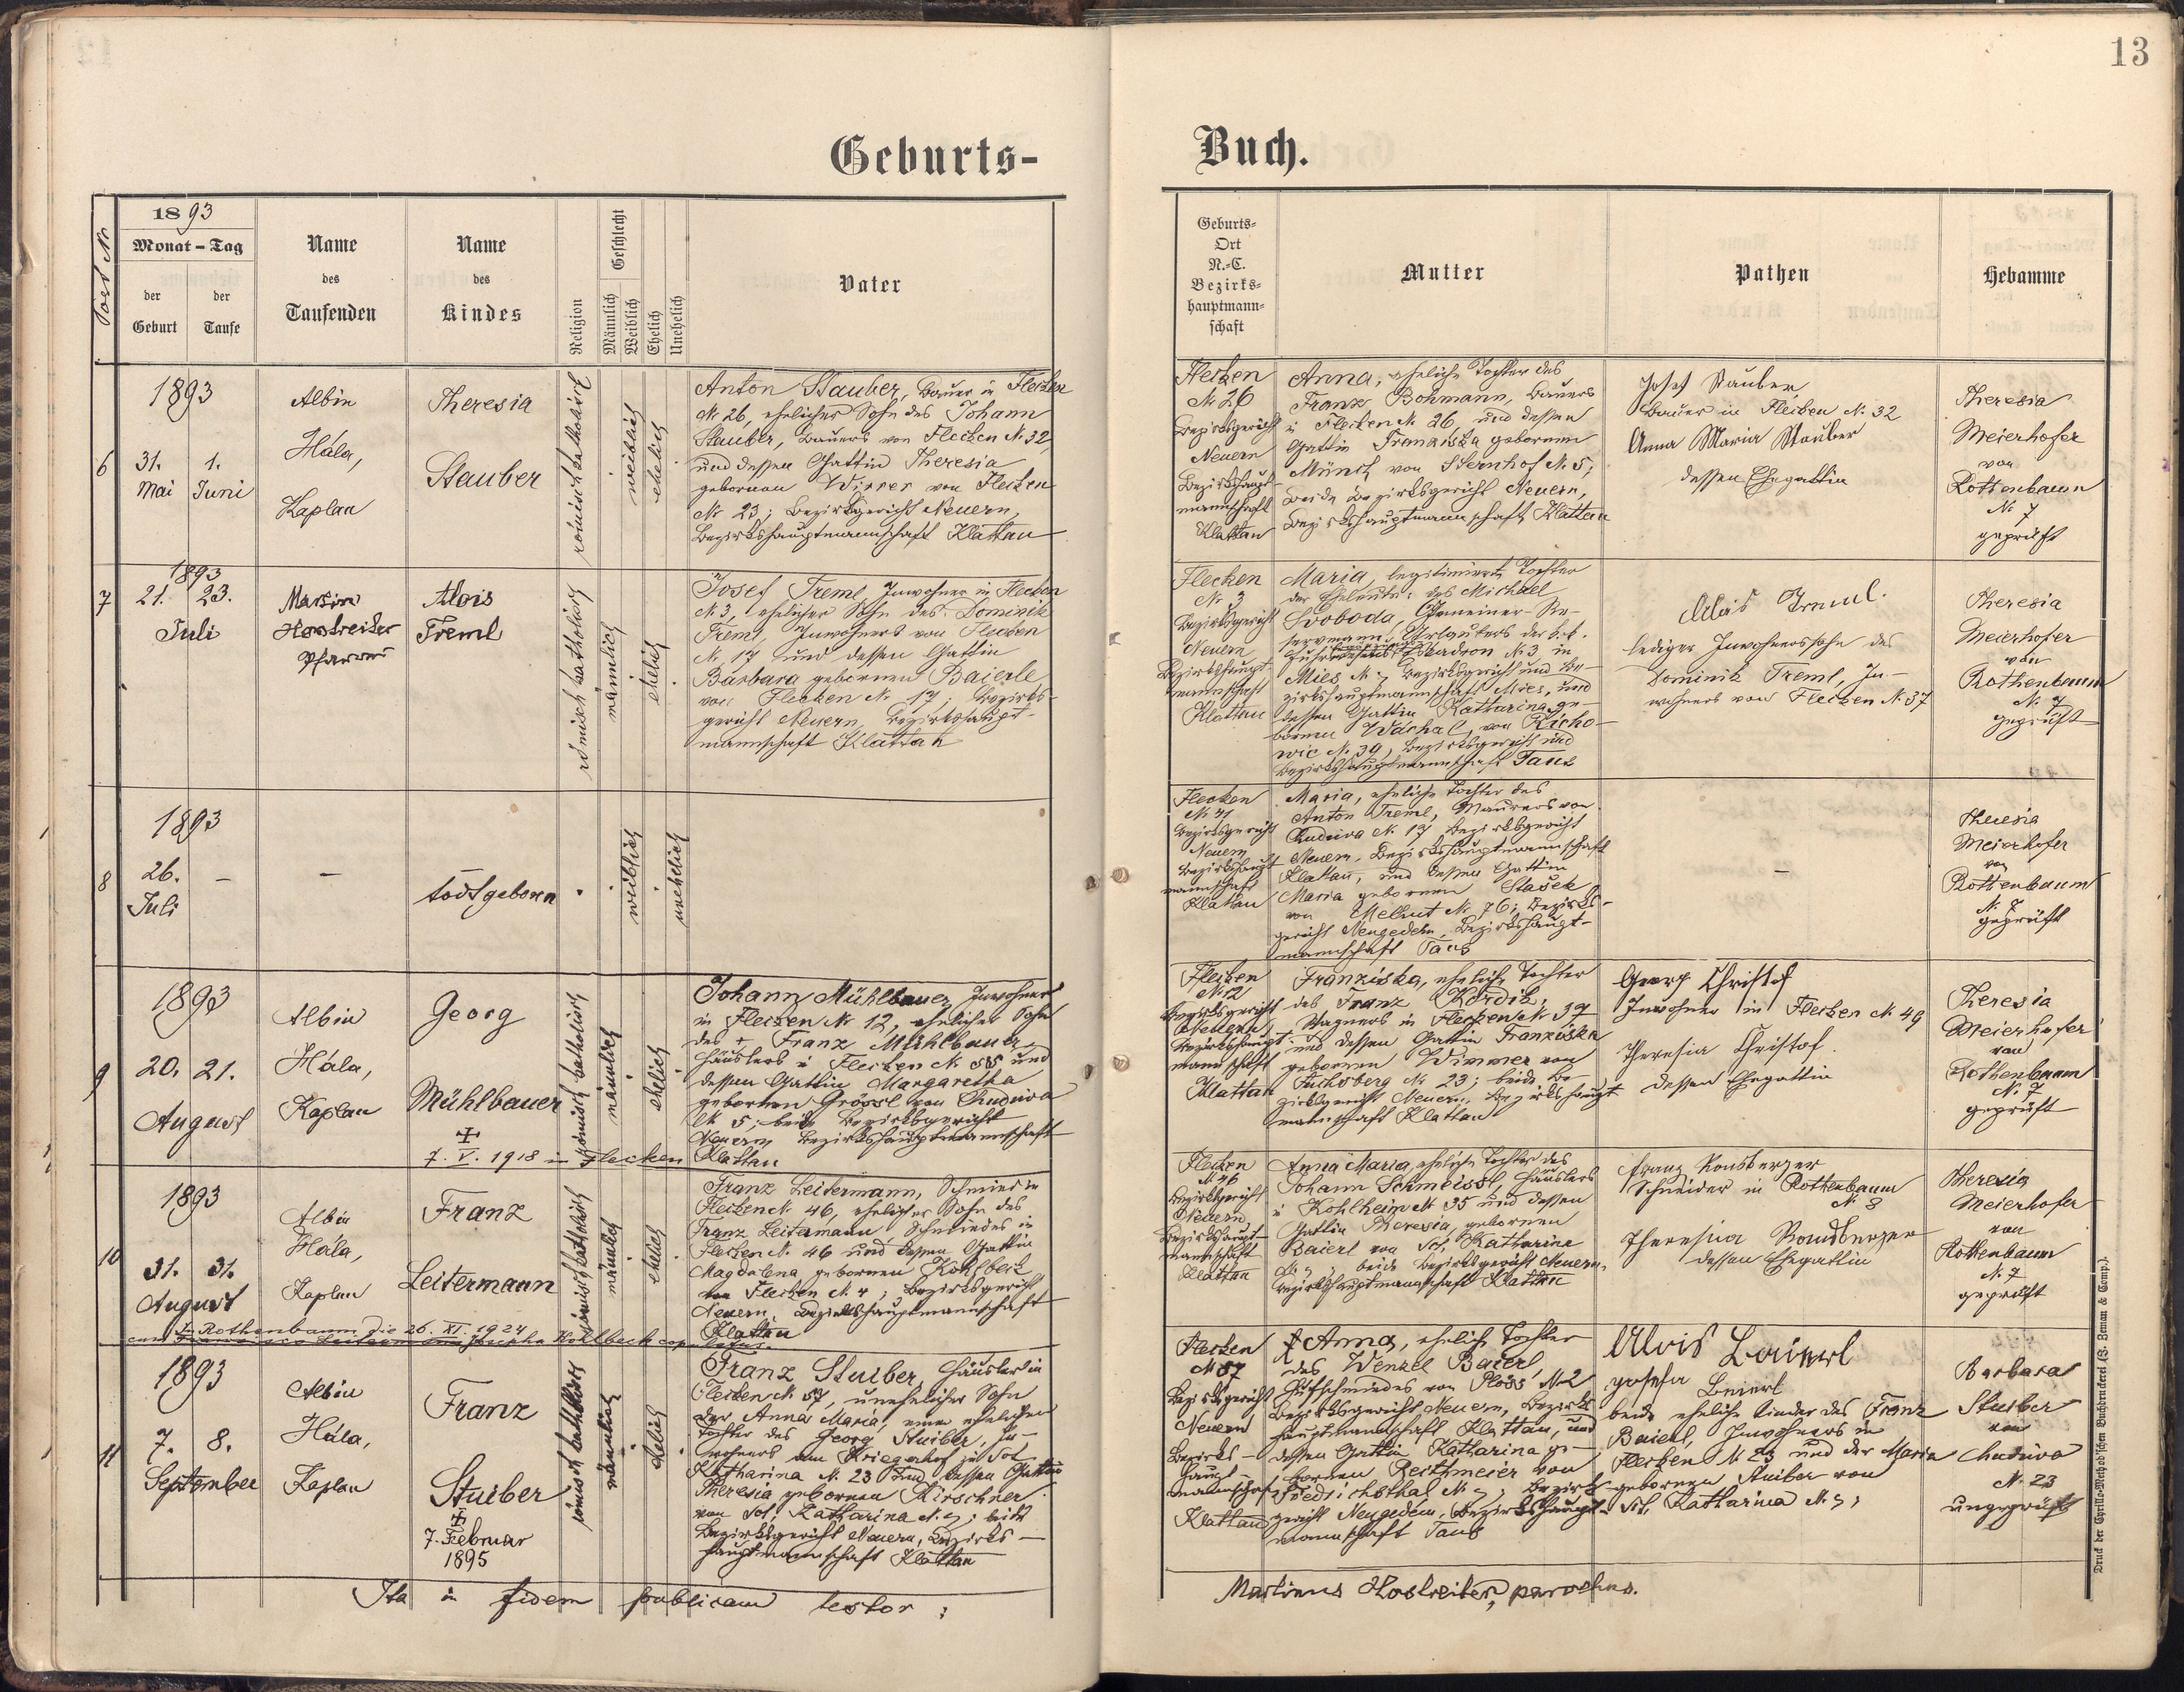 13
Geburts-
Buch.
Fort. Nr
1893
Monat – Tag
der Geburt
der Taufe
Name des Taufenden
Name des Kindes
Religion
Geschlecht
Männlich
Weiblich
Ehelich
Unehelich
Vater
Geburts-
Ort
N.-C.
Bezirks-
hauptmann-
schaft
Mutter
Pathen
Hebamme
6
1893
31. 1.
Mai Juni
Albin
Hála,
Kaplan
Theresia
Stauber
römisch katholisch
weiblich
ehelich
Anton Stauber, Bauer in Flecken
Nr 26, ehelicher Sohn des Johann
Stauber, Bauers von Flecken N. 32,
und dessen Gattin Theresia
gebornen Wirrer von Flecken
Nr 23; Bezirksgericht Neuern,
Bezirkshauptmannschaft Klattau
Flecken
Nr 26
Bezirksgericht
Neuern
Bezirkshaupt-
mannschaft
Klattau
Anna, eheliche Tochter des
Franz Bohmann, Bauers
in Flecken Nr 26, und dessen
Gattin Franziska gebornen
Münch von Sternhof N. 5;
beide Bezirksgericht Neuern,
Bezirkshauptmannschaft Klattau
Josef Stauber,
Bauer in Flecken N. 32
Anna Maria Stauber
dessen Ehegattin
Theresia
Meierhofer
von
Rottenbaum
N. 7
geprüft
7
1893
21. 23.
Juli
Martin
Hostreiter
Pfarrer
Alois
Treml
römisch katholisch
männlich
ehelich
Josef Treml, Inwohner in Flecken
N. 3, ehelicher Sohn des Dominik
Treml, Inwohners von Flecken
N. 17 und dessen Gattin
Barbara gebornen Baierle
von Flecken N. 17; Bezirks-
gericht Neuern, Bezirkshaupt-
mannschaft Klattau
Flecken
Nr 3
Bezirksgericht
Neuern
Bezirkshaupt-
mannschaft
Klattau
Maria, legitimierte Tochter
der Eheleute: des Michael
Svoboda, Gemeiner-Re-
servmann, Urlaubers der k.k.
Escadron N. 3 in
Mies, Bezirksgericht und Be-
zirkshauptmannschaft Mies, und
dessen Gattin Katharina ge-
bornen Wáchal, von Richo-
wic N. 39, Bezirksgericht und
Bezirkshauptmannschaft Taus
Alois Treml.
lediger Inwohnerssohn des
Dominik Treml, In-
wohners von Flecken N. 37
Theresia
Meierhofer
von
Rothenbaum
N. 7
geprüft
8
1893
26. –
Juli
–
todtgeboren
weiblich
unehelich
Flecken
Nr 41
Bezirksgericht
Neuern
Bezirkshaupt-
mannschaft
Klattau
Maria, eheliche Tochter des
Anton Treml, Maurers von
Chudiwa N. 17, Bezirksgericht
Neuern, Bezirkshauptmannschaft
Klattau, und dessen Gattin
Maria gebornen Stašek
von Melhut N. 76; Bezirks-
gericht Neugedein, Bezirkshaupt-
mannschaft Taus
–
Theresia
Meierhofer
von
Rottenbaum
N. 7
geprüft
9
1893
20. 21.
August
Albin
Hála,
Kaplan
Georg
Mühlbauer
✝
7. V. 1918 in Flecken
römisch katholisch
männlich
ehelich
Johann Mühlbauer, Inwohner
in Flecken Nr 12, ehelicher Sohn
des + Franz Mühlbauer,
Häuslers in Flecken N. 55 und
dessen Gattin Margaretha
gebornen Grössl von Chudiwa
N. 5; beide Bezirksgericht
Neuern, Bezirkshauptmannschaft
Klattau
Flecken
Nr 12
Bezirksgericht
Neuern
Bezirkshaupt-
mannschaft
Klattau
Franziska, eheliche Tochter
des Franz Kordik,
Wagners in Flecken N. 39
und dessen Gattin Franziska
gebornen Wimmer von
Fuchsberg N. 23; beide Be-
zirksgericht Neuern, Bezirkshaupt
mannschaft Klattau
Georg Christof
Inwohner in Flecken N. 49
Theresia Christof
dessen Ehegattin
Theresia
Meierhofer
von
Rothenbaum
N. 7
geprüft
10
1893
31. 31.
August
Albin
Hála,
Kaplan
Franz
Leitermann
römisch katholisch
männlich
ehelich
In Rothenbaum die 26. XI. 1924
cum Josepha Kohlbeck copulatus.
Franz Leitermann, Schmied in
Flecken N. 46, ehelicher Sohn des
Franz Leitermann Schmiedes in
Flecken N. 46 und dessen Gattin
Magdalena gebornen Kohlbeck
von Flecken N. 4; Bezirksgericht
Neuern, Bezirkshauptmannschaft
Klattau
Flecken
N. 46
Bezirksgericht
Neuern
Bezirkshaupt-
mannschaft
Klattau
Anna Maria, eheliche Tochter des
Johann Schmeissl, Häuslers
in Kohlheim N. 35 und dessen
Gattin Theresia, gebornen
Baierl von Sct. Katharina
beide Bezirksgericht Neuern,
Bezirkshauptmannschaft Klattau
Franz Ronsberger
Schneider in Rottenbaum
N. 8
Theresia Ronsberger
dessen Ehegattin
Theresia
Meierhofer
von
Rottenbaum
N. 7
geprüft
11
1893
7. 8.
September
Albin
Hála,
Kaplan
Franz
Stuiber
✝
7. Februar
1895
römisch katholisch
männlich
ehelich
Franz Stuiber, Häusler in
Flecken N. 57, unehelicher Sohn
der Anna Maria, einer ehelichen
Tochter des Georg Stuiber, In-
wohners am Kriegerhof zu Sct.
Katharina N. 23 und dessen Gattin
Theresia gebornen Kirschner
von Sct. Katharina N. 9; beide
Bezirksgericht Neuern, Bezirks-
hauptmannschaft Klattau
Flecken
N. 57
Bezirksgericht
Neuern
Bezirks-
haupt-
mannschaft
Klattau
Anna, eheliche Tochter
des Wenzel Baierl,
Hufschmiedes von Plöss N. 2
Bezirksgericht Neuern, Bezirks-
hauptmannschaft Klattau, und
dessen Gattin Katharina ge-
bornen Reithmeier von
Friedrichsthal N. 9; Bezirks-
gericht Neugedein, Bezirkshaupt-
mannschaft Taus
Alois Baierl
Josefa Beierl
beide eheliche Kinder des Franz
Baierl, Inwohners in
Flecken N. 23 und der Maria
gebornen Stuiber von
Sct. Katharina N. 9;
Barbara
Stuiber
von
Chudiwa
N. 23
ungeprüft
Ita in fidem publicam testor:
Martinus Hostreiter, parochus.
Druck der Cyrillo-Method'schen Buchdruckerei (B. Zeman & Comp.)